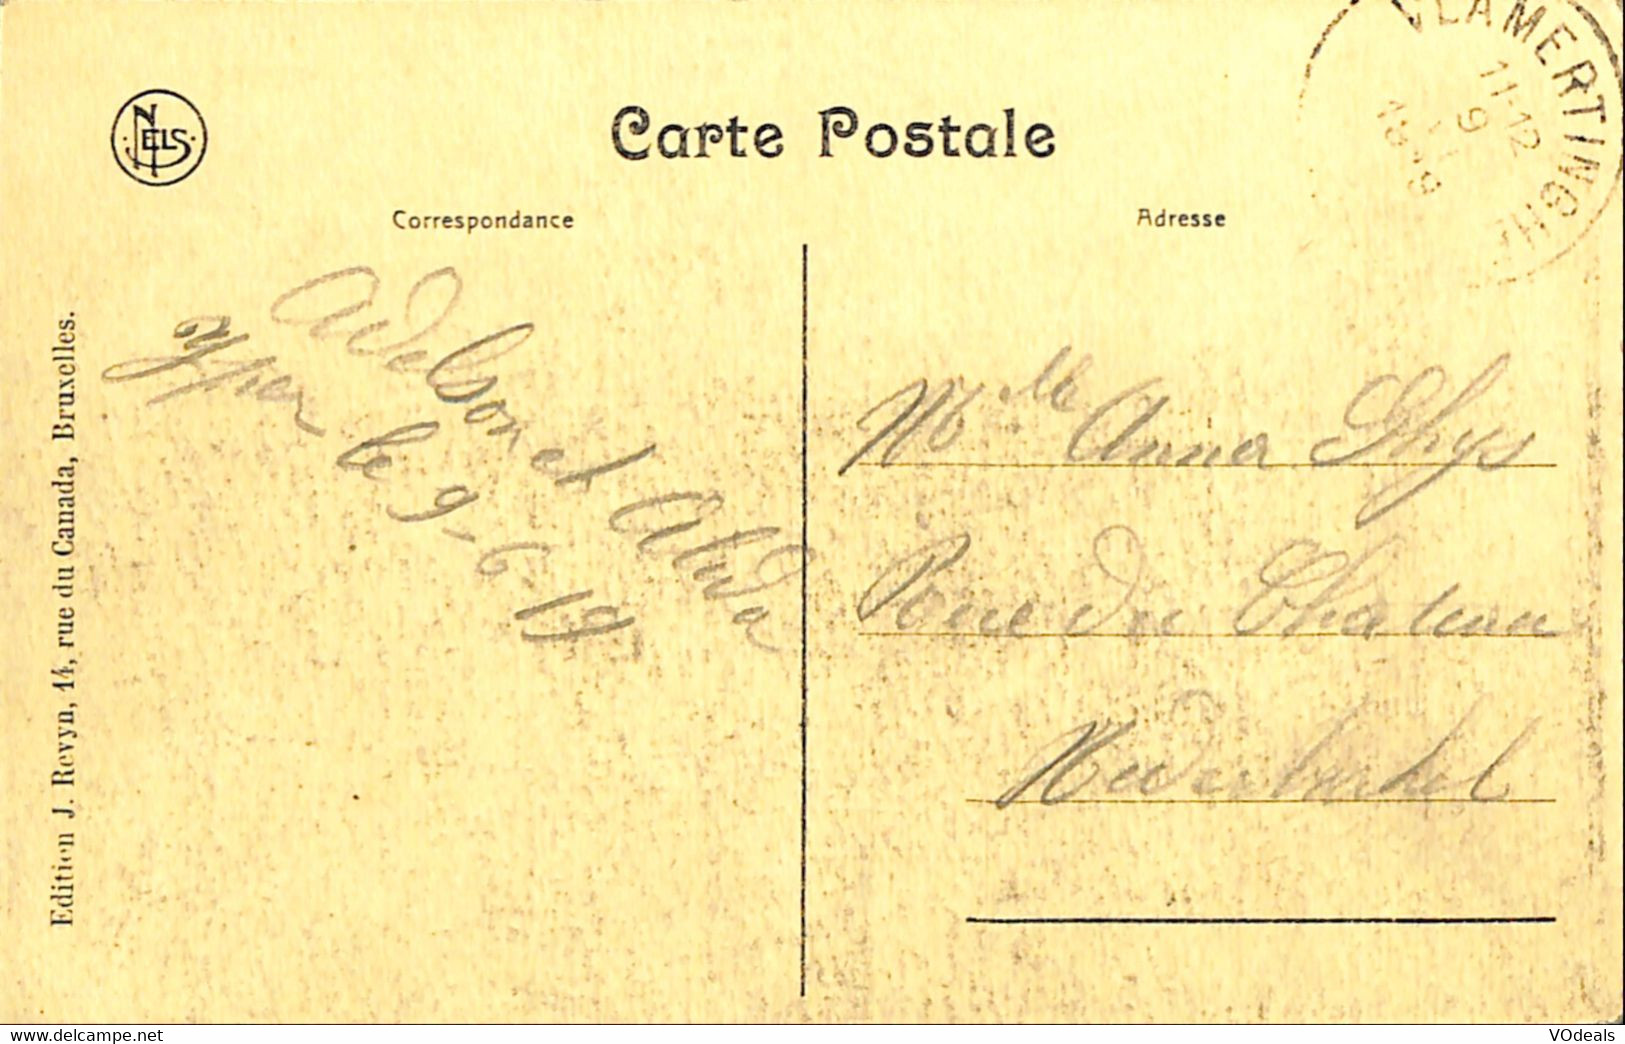 NELS
Carte Postale
VLAMERTINGH
11-12
9
19
Correspondance
Adresse
Adelson et Alida
yper le 9-6-19
Mlle Anna Ghys
Rue du Chateau
Nederbrakel
Edition J. Revyn, 14, rue du Canada, Bruxelles.
www.delcampe.net
VOdeals